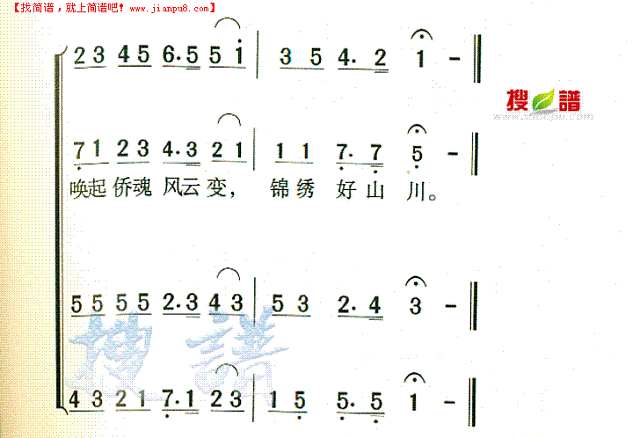 【找简谱，就上简谱吧！www.jianpu8.com】
23 45 6.5 5i | 3 5 4. 2 1 - ‖
搜谱
www.sooopu.com
71 23 4.3 21 | 1 1 7. 7 5 - ‖
唤起 侨魂 风云 变， 锦 绣 好 山 川。
55 55 2.3 43 | 53 2. 4 3 - ‖
搜谱
43 21 7.1 23 | 1 5 5. 5 1 - ‖